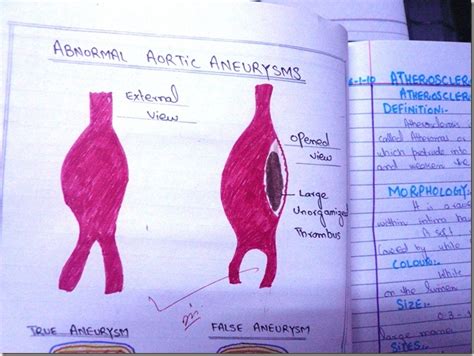 ABNORMAL AORTIC ANEURYSMS
EXTERNAL
VIEW
OPENED
VIEW
Large
Unorganized
Thrombus
TRUE ANEURYSM
FALSE ANEURYSM
-1-10
ATHEROSCLER
ATHEROSCLER
DEFINITION:-
Atherosclerosis
called Atheromas
which protude into
and weaken the
MORPHOLOGY
It is
within intima
A soft
Covered by white
COLOUR:-
White
on the lumen
SIZE:-
0.3 -
large
SITES